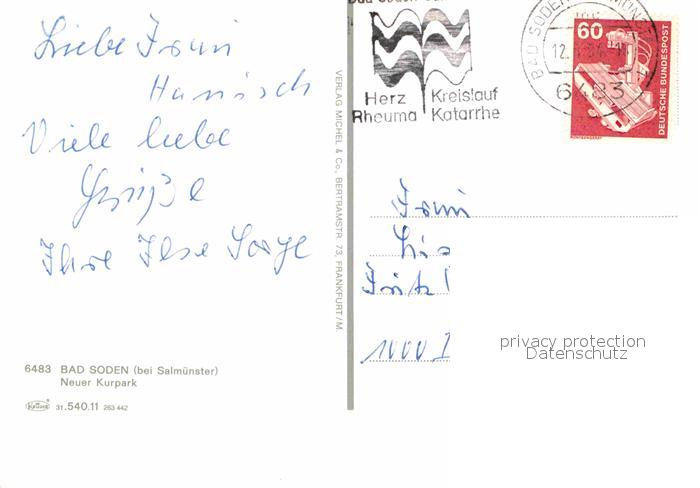 Liebe Frau
Hanisch
Viele liebe
Grüße
Ihre Ilse Sorge
6483 BAD SODEN (bei Salmünster)
Neuer Kurpark
Krüger 31.540.11 263 442
VERLAG MICHEL & Co., BERTRAMSTR. 73, FRANKFURT/M.
Herz Kreislauf
Rheuma Katarrhe
BAD SODEN
12.
6483
60
DEUTSCHE BUNDESPOST
Frau
1000 I
privacy protection
Datenschutz